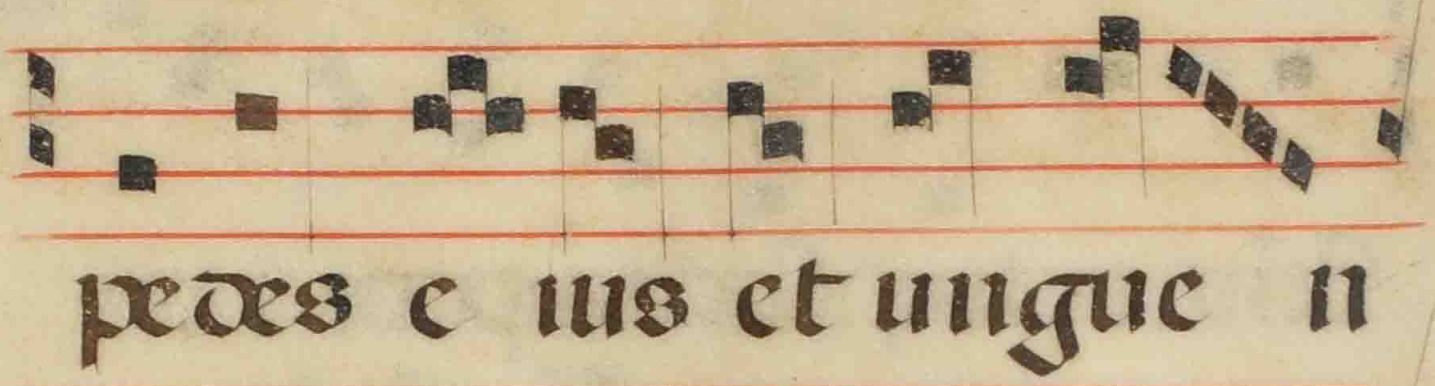 pedes e ius et ungue n